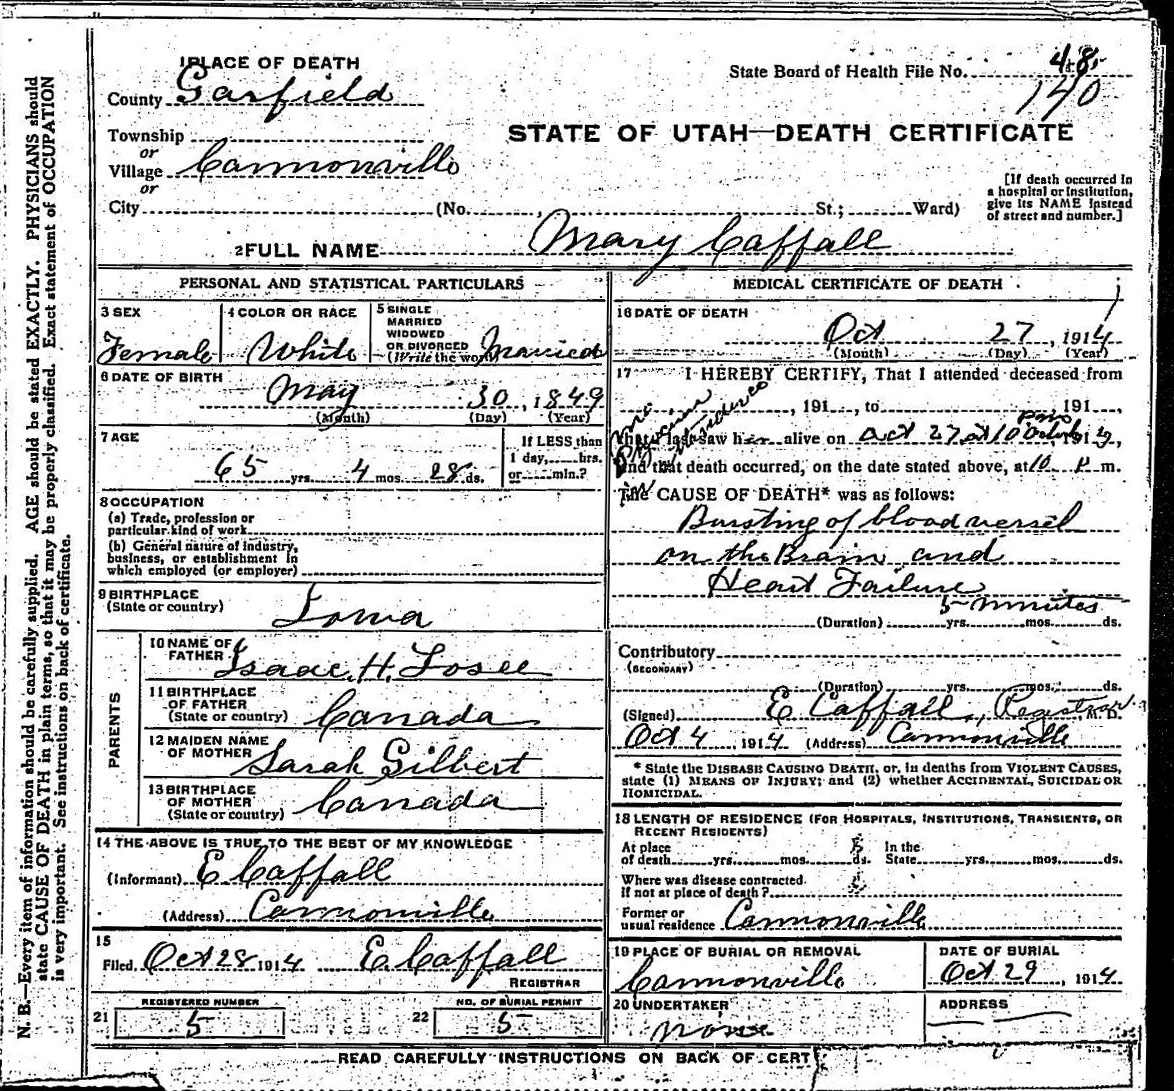 1 PLACE OF DEATH
County Garfield
Township
or
Village Cannonville
or
City (No. , St.; Ward)
State Board of Health File No. 48
140
STATE OF UTAH—DEATH CERTIFICATE
[If death occurred in
a hospital or institution,
give its NAME instead
of street and number.]
2 FULL NAME Mary Caffall
PERSONAL AND STATISTICAL PARTICULARS
3 SEX
Female
4 COLOR OR RACE
White
5 SINGLE
MARRIED
WIDOWED
OR DIVORCED
(Write the word) Married
6 DATE OF BIRTH
May 30, 1849
(Month) (Day) (Year)
7 AGE
65 yrs. 4 mos. 28 ds.
If LESS than
1 day, hrs.
or min.?
8 OCCUPATION
(a) Trade, profession or
particular kind of work
(b) General nature of industry,
business, or establishment in
which employed (or employer)
9 BIRTHPLACE
(State or country) Iowa
PARENTS
10 NAME OF
FATHER Isaac H. Losee
11 BIRTHPLACE
OF FATHER
(State or country) Canada
12 MAIDEN NAME
OF MOTHER Sarah Gilbert
13 BIRTHPLACE
OF MOTHER
(State or country) Canada
14 THE ABOVE IS TRUE TO THE BEST OF MY KNOWLEDGE
(Informant) E Caffall
(Address) Cannonville
15
Filed Oct 28 1914 E. Caffall
REGISTRAR
REGISTERED NUMBER
21 5
NO. OF BURIAL PERMIT
22 5
MEDICAL CERTIFICATE OF DEATH
16 DATE OF DEATH
Oct 27, 1914
(Month) (Day) (Year)
17 I HEREBY CERTIFY, That I attended deceased from
, 191 , to 191 ,
no
Physician
in
that I last saw her alive on Oct 27 at 10 pm 191 ,
and that death occurred, on the date stated above, at 10 P m.
The CAUSE OF DEATH* was as follows:
Bursting of blood vessel
on the Brain and
Heart Failure
5 minutes
(Duration) yrs. mos. ds.
Contributory
(SECONDARY)
(Duration) yrs. mos. ds.
(Signed) E Caffall, Registrar M. D.
Oct 4, 1914 (Address) Cannonville
* State the DISEASE CAUSING DEATH, or, in deaths from VIOLENT CAUSES,
state (1) MEANS OF INJURY; and (2) whether ACCIDENTAL, SUICIDAL OR
HOMICIDAL.
18 LENGTH OF RESIDENCE (FOR HOSPITALS, INSTITUTIONS, TRANSIENTS, OR
RECENT RESIDENTS)
At place
of death yrs. mos. ds. In the
State yrs. mos. ds.
Where was disease contracted
if not at place of death?
Former or
usual residence Cannonville
19 PLACE OF BURIAL OR REMOVAL
Cannonville
DATE OF BURIAL
Oct 29, 1914
20 UNDERTAKER
None
ADDRESS
READ CAREFULLY INSTRUCTIONS ON BACK OF CERT
N. B.—Every item of information should be carefully supplied. AGE should be stated EXACTLY. PHYSICIANS should
state CAUSE OF DEATH in plain terms, so that it may be properly classified. Exact statement of OCCUPATION
is very important. See instructions on back of certificate.